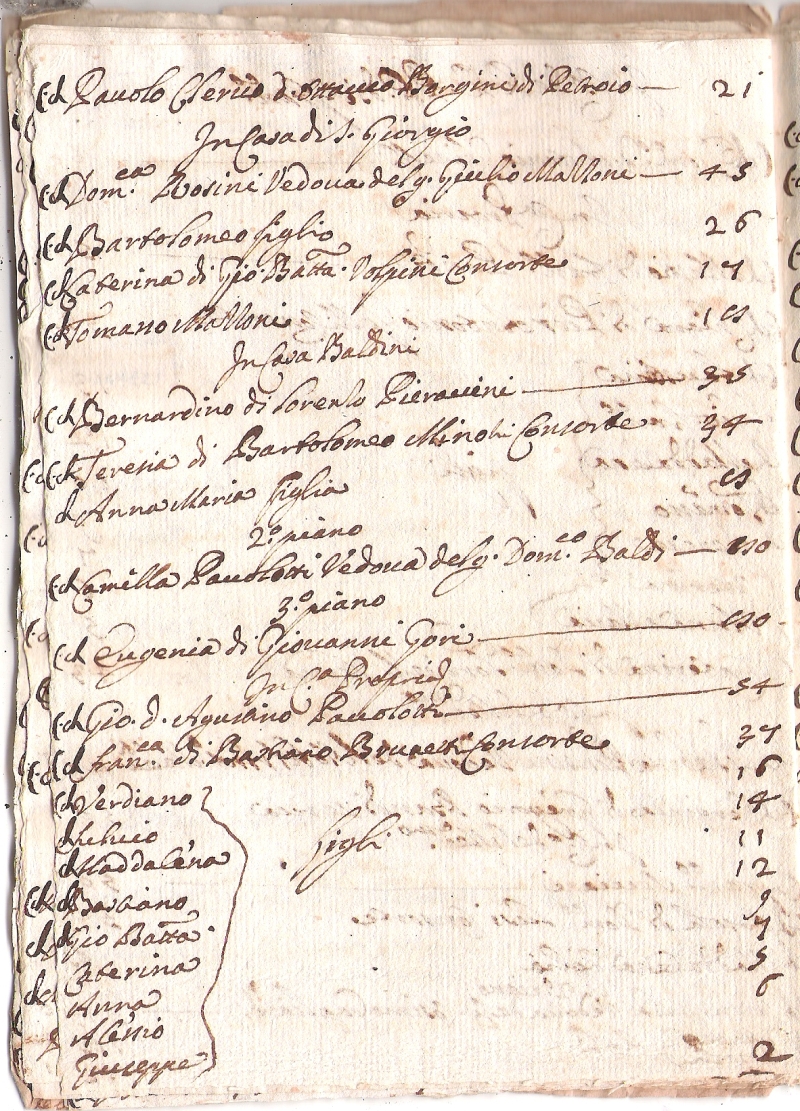 C. d. Pauolo Clerico d. Ottavio Borgini di Petroio — 21
In Casa di S. Giorgio
C. d. Dom.ca Rosini Vedova del q. Giulio Mazzoni — 45
C. d. Bartolomeo figlio 26
C. d. Caterina di Gio: Batta. Volpini Consorte 17
C. d. Tomasso Mazzoni
In Casa Baldini
C. d. Bernardino di Lorenzo Pieraccini — 35
C. d. Teresia di Bartolomeo Minoti Consorte 34
d. Anna Maria figlia
2.o piano
C. d. Camilla Pauolotti Vedova del q. Dom.co Baldi —
3.o piano
C. d. Eugenia di Giovanni Gori —
In C.a Propria
C. d. Gio. d. Agustino Pauolotti — 54
C. d. fran.ca di Bastiano Brunetti Consorte 37
C. d. Verdiano 16
d. 14
d. Maddalena figli 11
C. d. Bastiano 12
C. d. Gio Batta. 9
d. Caterina 7
Anna 5
Alessio 6
Giuseppe 2